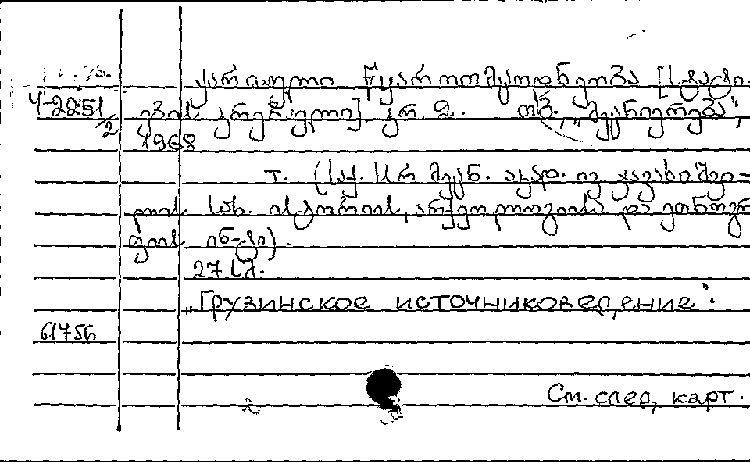 ქართული წყაროთმცოდნეობა [სტატი-
Ч-2251/2 ების კრებული]. კრ. 2. თბ., „მეცნიერება“,
1968
т. (საქ. სსრ მეცნ. აკად. ივ. ჯავახიშვი-
ლის სახ. ისტორიის, არქეოლოგიისა და ეთნოგრ
ფიის ინ-ტი).
27 სმ.
„Грузинское источниковедение".
61756
См. след, карт.